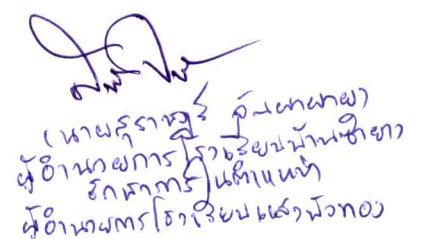 (นายสุราษฎร์
ผู้อำนวยการโรงเรียนบ้านซำยาว
รักษาการในตำแหน่ง
ผู้อำนวยการโรงเรียนแสงบัวทอง